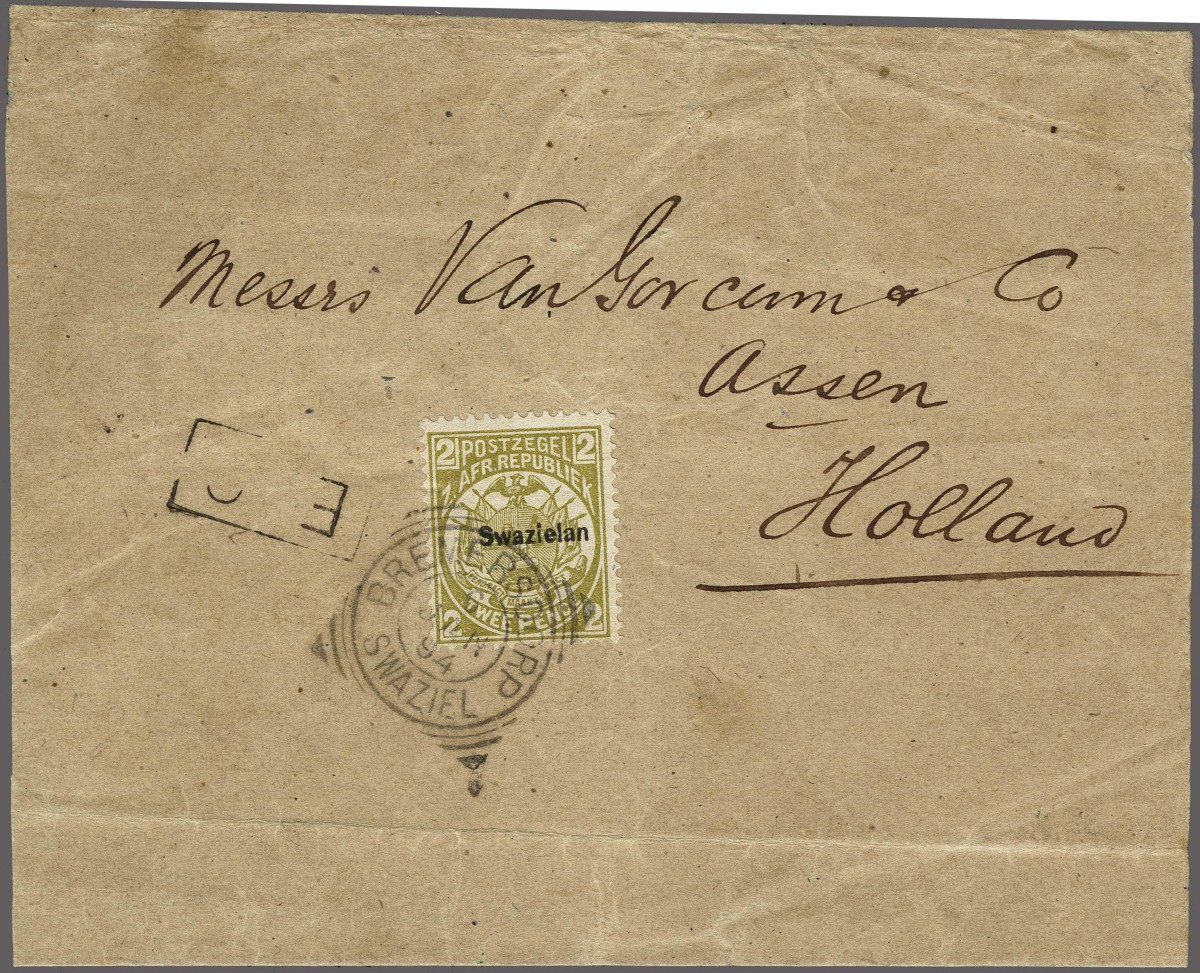 Messrs Van Gorcum & Co
Assen
Holland
2 POSTZEGEL 2
AFR. REPUBLIEK
Swazielan
2 TWEE PENCE 2
BREMERSDORP
94
SWAZIEL